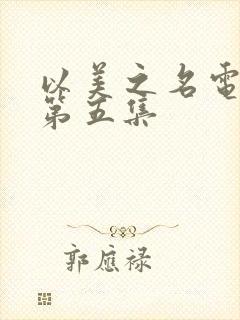 以美之名電
第五集
郭應祿